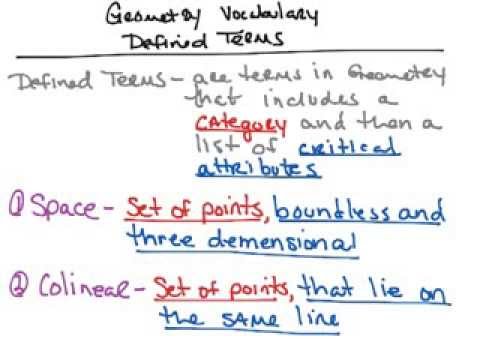 Geometry Vocabulary
Defined Terms
Defined Terms - are terms in Geometry
that includes a
category and then a
list of critical
attributes
① Space - Set of points, boundless and
three demensional
② Colinear - Set of points, that lie on
the same line